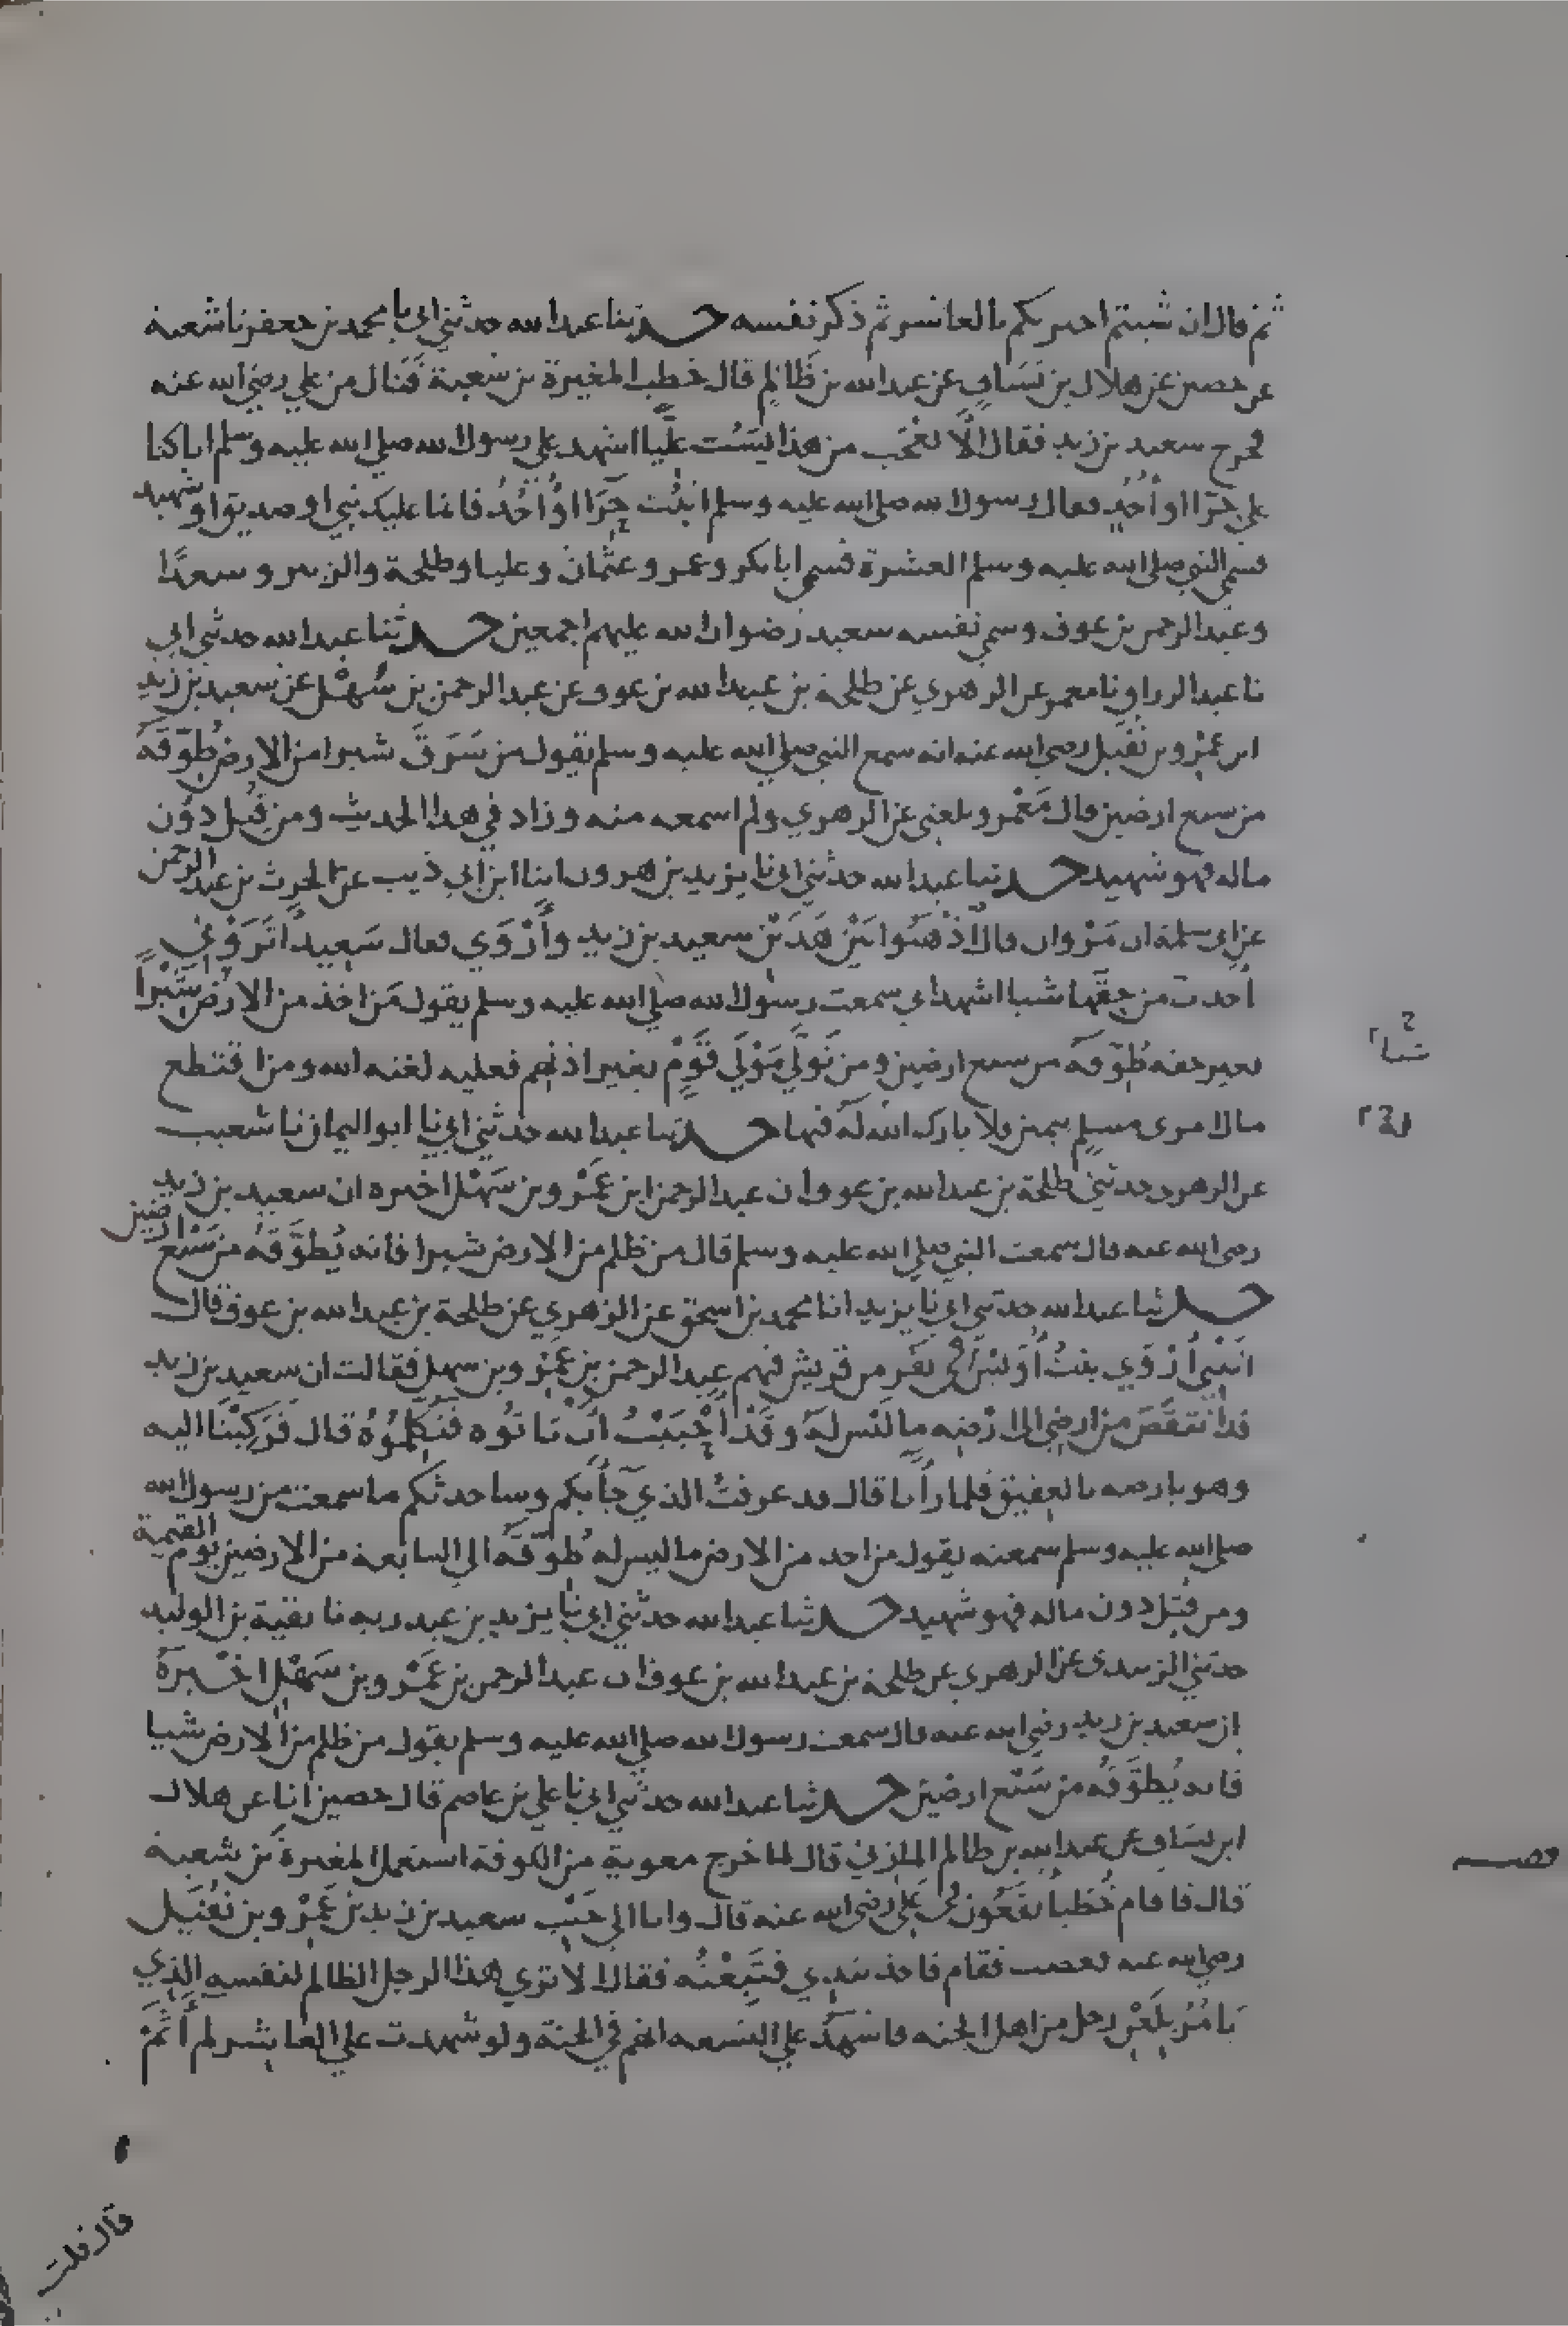 ثم قال ان شيتم اخبرتكم بالعاشر ثم ذكر نفسه حدثنا عبد الله حدثني ابي نا محمد بن جعفر نا شعبة
عن حصين عن هلال بن يساف عن عبد الله بن ظالم قال خطب المغيرة بن شعبة فنال من علي رضي الله عنه
فخرج سعيد بن زيد فقال الا تعجب من هذا يسب عليا اشهد على رسول الله صلى الله عليه وسلم انا كنا
على حرا او أحد فقال رسول الله صلى الله عليه وسلم اثبت حرا او أحد فانما عليك نبي او صديق او شهيد
فسمى النبي صلى الله عليه وسلم العشرة فسمى ابا بكر وعمر وعثمان وعليا وطلحة والزبير وسعدا
وعبد الرحمن بن عوف وسمى نفسه سعيد رضوان الله عليهم اجمعين حدثنا عبد الله حدثني ابي
نا عبد الرزاق نا معمر عن الزهري عن طلحة بن عبد الله بن عوف عن عبد الرحمن بن سهل عن سعيد بن زيد
ابن عمرو بن نفيل رضي الله عنه انه سمع النبي صلى الله عليه وسلم يقول من سرق شبرا من الارض طوقه
من سبع ارضين قال معمر وبلغني عن الزهري ولم اسمعه منه وزاد في هذا الحديث ومن قتل دون
ماله فهو شهيد حدثنا عبد الله حدثني ابي نا يزيد بن هرون انبا ابن ابي ذيب عن الحرث بن عبد الرحمن
عن ابي سلمة ان مروان قال اذهبوا بين هذين سعيد بن زيد وأروي فقال سعيد أتروني
أخذت من حقها شيا اشهد اني سمعت رسول الله صلى الله عليه وسلم يقول من اخذ من الارض شبرا
بغير حقه طوقه من سبع ارضين ومن تولى مولى قوم بغير اذنهم فعليه لعنه الله ومن اقتطع
مال امرى مسلم بيمين فلا بارك الله له فيها حدثنا عبد الله حدثني ابي نا ابو اليمان نا شعيب
عن الزهري حدثني طلحة بن عبد الله بن عوف ان عبد الرحمن ابن عمرو بن سهل اخبره ان سعيد بن زيد
رضي الله عنه قال سمعت النبي صلى الله عليه وسلم قال من ظلم من الارض شبرا فانه يطوقه من سبع ارضين
حدثنا عبد الله حدثني ابي نا يزيد انا محمد بن اسحق عن الزهري عن طلحة بن عبد الله بن عوف قال
اتتني أروي بنت أويس في نفر من قريش فيهم عبد الرحمن بن عمرو بن سهل فقالت ان سعيد بن زيد
قد انتقص من ارضي الى ارضه ما ليس له وقد أحببت ان تاتوه فتكلموه قال فركبنا اليه
وهو بارضه بالعقيق فلما رأنا قال قد عرفت الذي جأ بكم وساحدثكم ما سمعت من رسول الله
صلى الله عليه وسلم سمعته يقول من اخذ من الارض ما ليس له طوقه الي السابعة من الارضين يوم القيمة
ومن قتل دون ماله فهو شهيد حدثنا عبد الله حدثني ابي نا يزيد بن عبد ربه نا بقية بن الوليد
حدثني الزبيدي عن الزهري عن طلحة بن عبد الله بن عوف ان عبد الرحمن بن عمرو بن سهل اخبره
ان سعيد بن زيد رضي الله عنه قال سمعت رسول الله صلى الله عليه وسلم يقول من ظلم من الارض شيا
فانه يطوقه من سبع ارضين حدثنا عبد الله حدثني ابي نا علي بن عاصم قال حصين انا عن هلال
ابن يساف عن عبد الله بن ظالم المازني قال لما خرج معوية من الكوفة استعمل المغيرة بن شعبة
قال فاقام خطبا يقعون في علي رضي الله عنه قال وانا الي جنب سعيد بن زيد بن عمرو بن نفيل
رضي الله عنه فغضب فقام فاخذ بيدي فتبعته فقال الا تري هذا الرجل الظالم لنفسه الذي
يامر بلعن رجل من اهل الجنه فاشهد علي التسعه انهم في الجنة ولو شهدت علي العاشر لم أثم
قال قلت